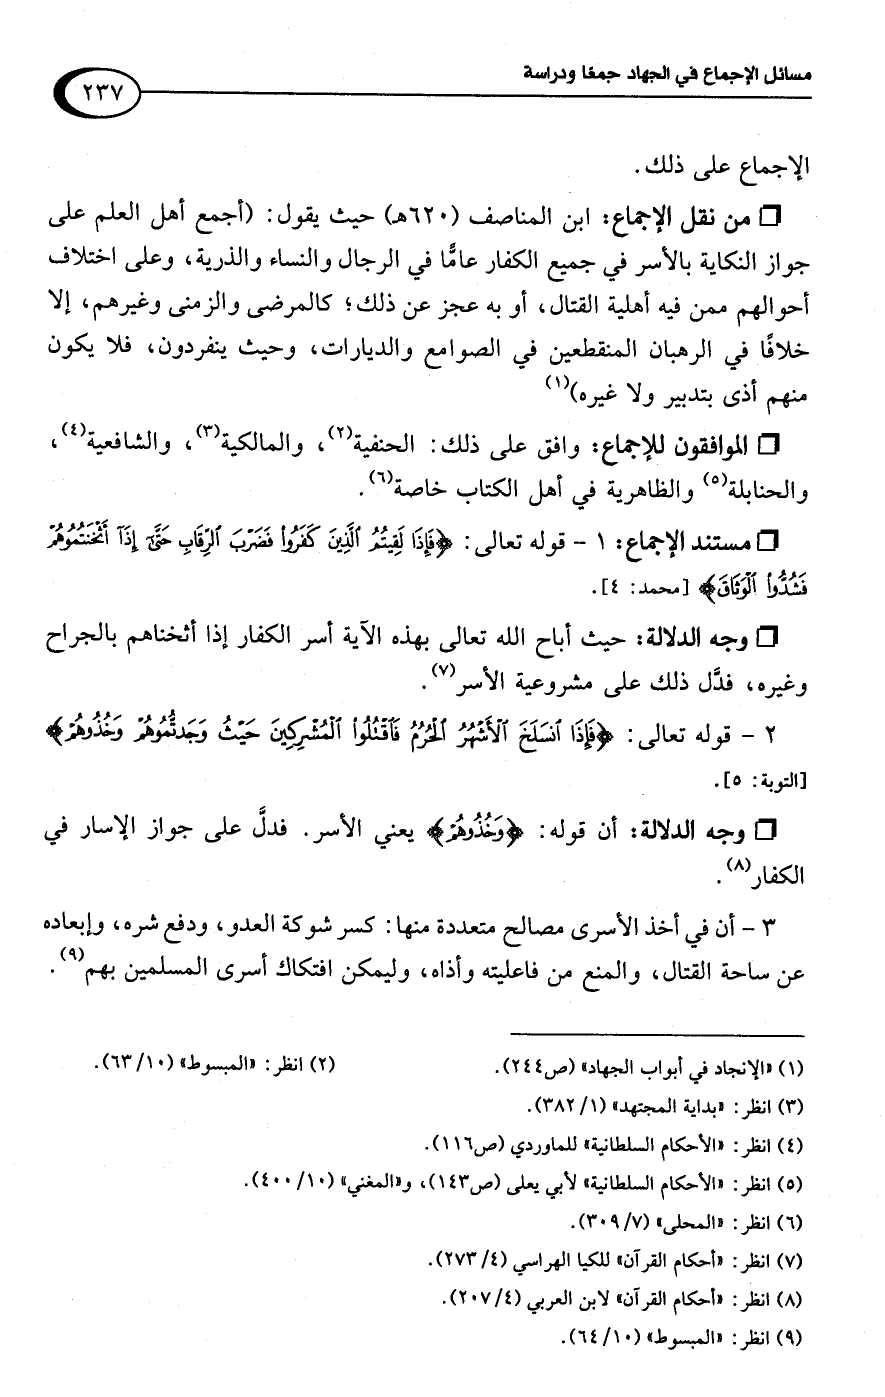 مسائل الإجماع في الجهاد جمعًا ودراسة
٢٣٧
الإجماع على ذلك.
❒ من نقل الإجماع: ابن المناصف (٦٢٠هـ) حيث يقول: (أجمع أهل العلم على
جواز النكاية بالأسر في جميع الكفار عامًّا في الرجال والنساء والذرية، وعلى اختلاف
أحوالهم ممن فيه أهلية القتال، أو به عجز عن ذلك؛ كالمرضى والزمنى وغيرهم، إلا
خلافًا في الرهبان المنقطعين في الصوامع والديارات، وحيث ينفردون، فلا يكون
منهم أذى بتدبير ولا غيره)(١)
❒ الموافقون للإجماع: وافق على ذلك: الحنفية(٢)، والمالكية(٣)، والشافعية(٤)،
والحنابلة(٥) والظاهرية في أهل الكتاب خاصة(٦).
❒ مستند الإجماع: ١ - قوله تعالى: ﴿فَإِذَا لَقِيتُمُ ٱلَّذِينَ كَفَرُواْ فَضَرْبَ ٱلرِّقَابِ حَتَّىٰٓ إِذَآ أَثْخَنتُمُوهُمْ
فَشُدُّواْ ٱلْوَثَاقَ﴾ [محمد: ٤].
❒ وجه الدلالة: حيث أباح الله تعالى بهذه الآية أسر الكفار إذا أثخناهم بالجراح
وغيره، فدَّل ذلك على مشروعية الأسر(٧).
٢ - قوله تعالى: ﴿فَإِذَا ٱنسَلَخَ ٱلْأَشْهُرُ ٱلْحُرُمُ فَٱقْتُلُواْ ٱلْمُشْرِكِينَ حَيْثُ وَجَدتُّمُوهُمْ وَخُذُوهُمْ﴾
[التوبة: ٥].
❒ وجه الدلالة: أن قوله: ﴿وَخُذُوهُمْ﴾ يعني الأسر. فدلَّ على جواز الإسار في
الكفار(٨).
٣ - أن في أخذ الأسرى مصالح متعددة منها: كسر شوكة العدو، ودفع شره، وإبعاده
عن ساحة القتال، والمنع من فاعليته وأذاه، وليمكن افتكاك أسرى المسلمين بهم(٩).
(١) «الإنجاد في أبواب الجهاد» (ص٢٤٤). (٢) انظر: «المبسوط» (٦٣/١٠).
(٣) انظر: «بداية المجتهد» (٣٨٢/١).
(٤) انظر: «الأحكام السلطانية» للماوردي (ص١١٦).
(٥) انظر: «الأحكام السلطانية» لأبي يعلى (ص١٤٣)، و«المغني» (٤٠٠/١٠).
(٦) انظر: «المحلى» (٣٠٩/٧).
(٧) انظر: «أحكام القرآن» للكيا الهراسي (٢٧٣/٤).
(٨) انظر: «أحكام القرآن» لابن العربي (٢٠٧/٤).
(٩) انظر: «المبسوط» (٦٤/١٠).